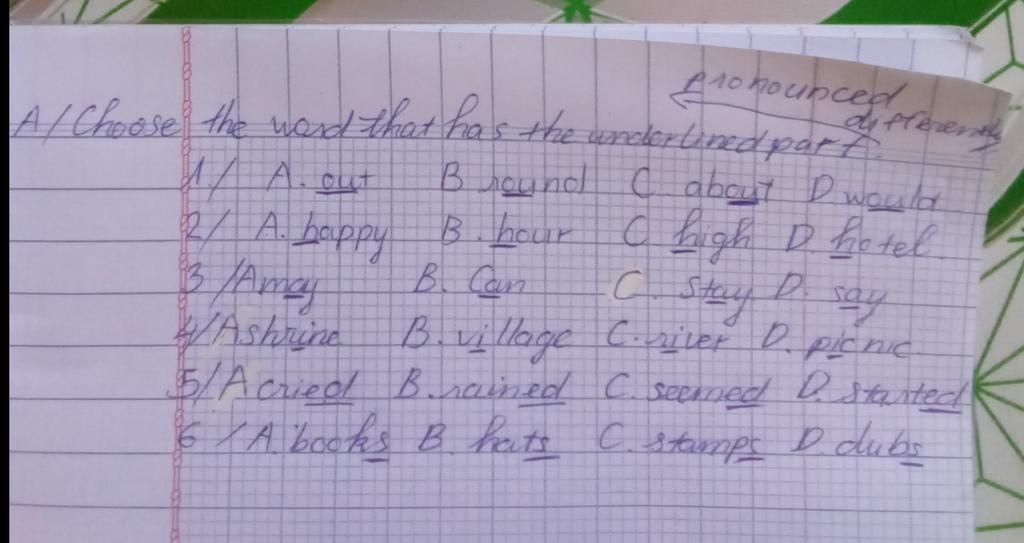 pronounced
differently
A/ Choose the word that has the underlined part.
1/ A. out B round C. about D would
2/ A. happy B. hour C high D. hotel.
3 /A may B. Can C. stay D. say
4/ A shrine B. village C. river D. picnic.
5/ A cried B. rained C. seemed D. started
6 / A. books B hats C. stamps D. clubs